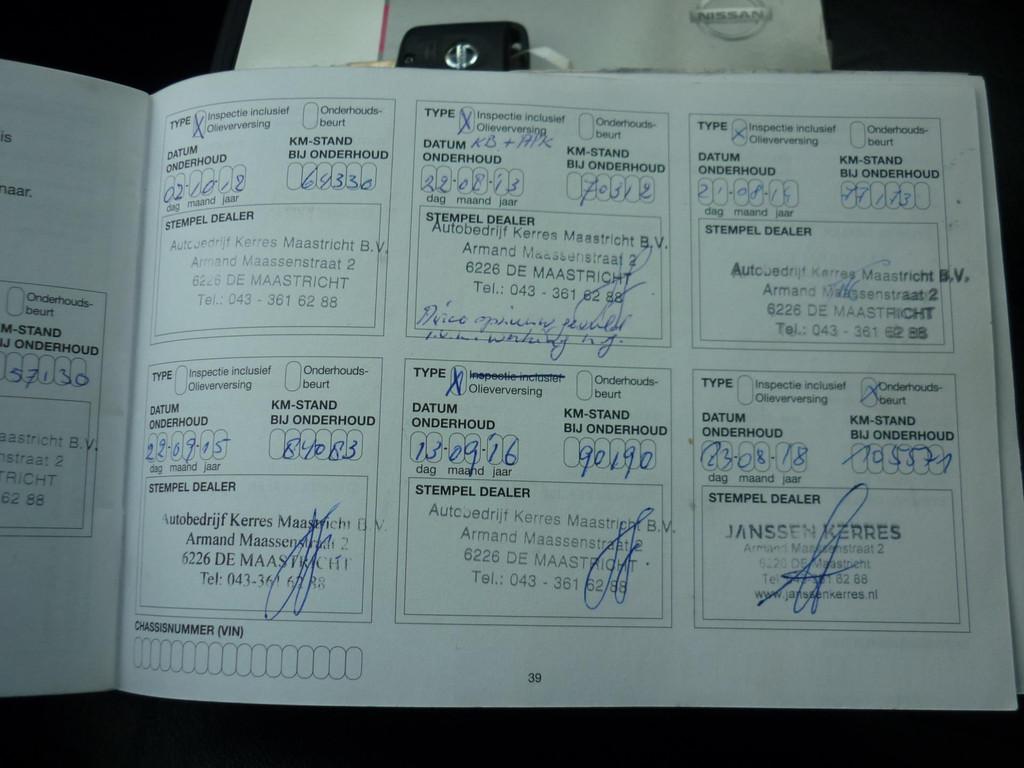 NISSAN
is
naar.
Onderhouds-
beurt
KM-STAND
BIJ ONDERHOUD
57130
Maastricht B.V.
62 88
TYPE X Inspectie inclusief
Olieverversing
Onderhouds-
beurt
DATUM
ONDERHOUD
KM-STAND
BIJ ONDERHOUD
02-10-12
64330
dag maand jaar
STEMPEL DEALER
Autobedrijf Kerres Maastricht B.V.
Armand Maassenstraat 2
6226 DE MAASTRICHT
Tel.: 043 - 361 62 88
TYPE X Inspectie inclusief
Olieverversing
Onderhouds-
beurt
DATUM KB + APK
ONDERHOUD
KM-STAND
BIJ ONDERHOUD
22-08-13
70312
dag maand jaar
STEMPEL DEALER
Autobedrijf Kerres Maastricht B.V.
Armand Maassenstraat 2
6226 DE MAASTRICHT
Tel.: 043 - 361 62 88
Airco opnieuw gevuld
i.v.m. werking n.g.
TYPE X Inspectie inclusief
Olieverversing
Onderhouds-
beurt
DATUM
ONDERHOUD
KM-STAND
BIJ ONDERHOUD
21-08-14
77173
dag maand jaar
STEMPEL DEALER
Autobedrijf Kerres Maastricht B.V.
Armand Maassenstraat 2
6226 DE MAASTRICHT
Tel.: 043 - 361 62 88
TYPE Inspectie inclusief
Olieverversing
Onderhouds-
beurt
DATUM
ONDERHOUD
KM-STAND
BIJ ONDERHOUD
22-09-15
84083
dag maand jaar
STEMPEL DEALER
Autobedrijf Kerres Maastricht B.V.
Armand Maassenstraat 2
6226 DE MAASTRICHT
Tel: 043-361 62 88
TYPE X Inspectie inclusief
Olieverversing
Onderhouds-
beurt
DATUM
ONDERHOUD
KM-STAND
BIJ ONDERHOUD
13-09-16
90190
dag maand jaar
STEMPEL DEALER
Autobedrijf Kerres Maastricht B.V.
Armand Maassenstraat 2
6226 DE MAASTRICHT
Tel.: 043 - 361 62 88
TYPE Inspectie inclusief
Olieverversing
X Onderhouds-
beurt
DATUM
ONDERHOUD
KM-STAND
BIJ ONDERHOUD
23-08-18
105571
dag maand jaar
STEMPEL DEALER
JANSSEN KERRES
Armand Maassenstraat 2
Maastricht
Tel 61 62 88
www.janssenkerres.nl
CHASSISNUMMER (VIN)
39